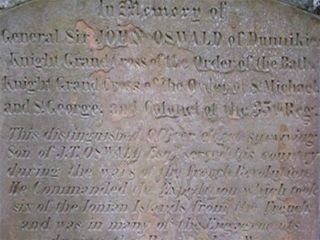 In Memory of
General Sir JOHN OSWALD of Dunnikier
Knight Grand Cross of the Order of the Bath
Knight Grand Cross of the Order of St Michael
and St George, and Colonel of the 35th Reg.
This distinguished Officer eldest surviving
Son of J.T. OSWALD Esq. served his country
during the wars of the French Revolution
He Commanded the Expedition which took
six of the Ionian Islands from the French
and was in many of the Engagements